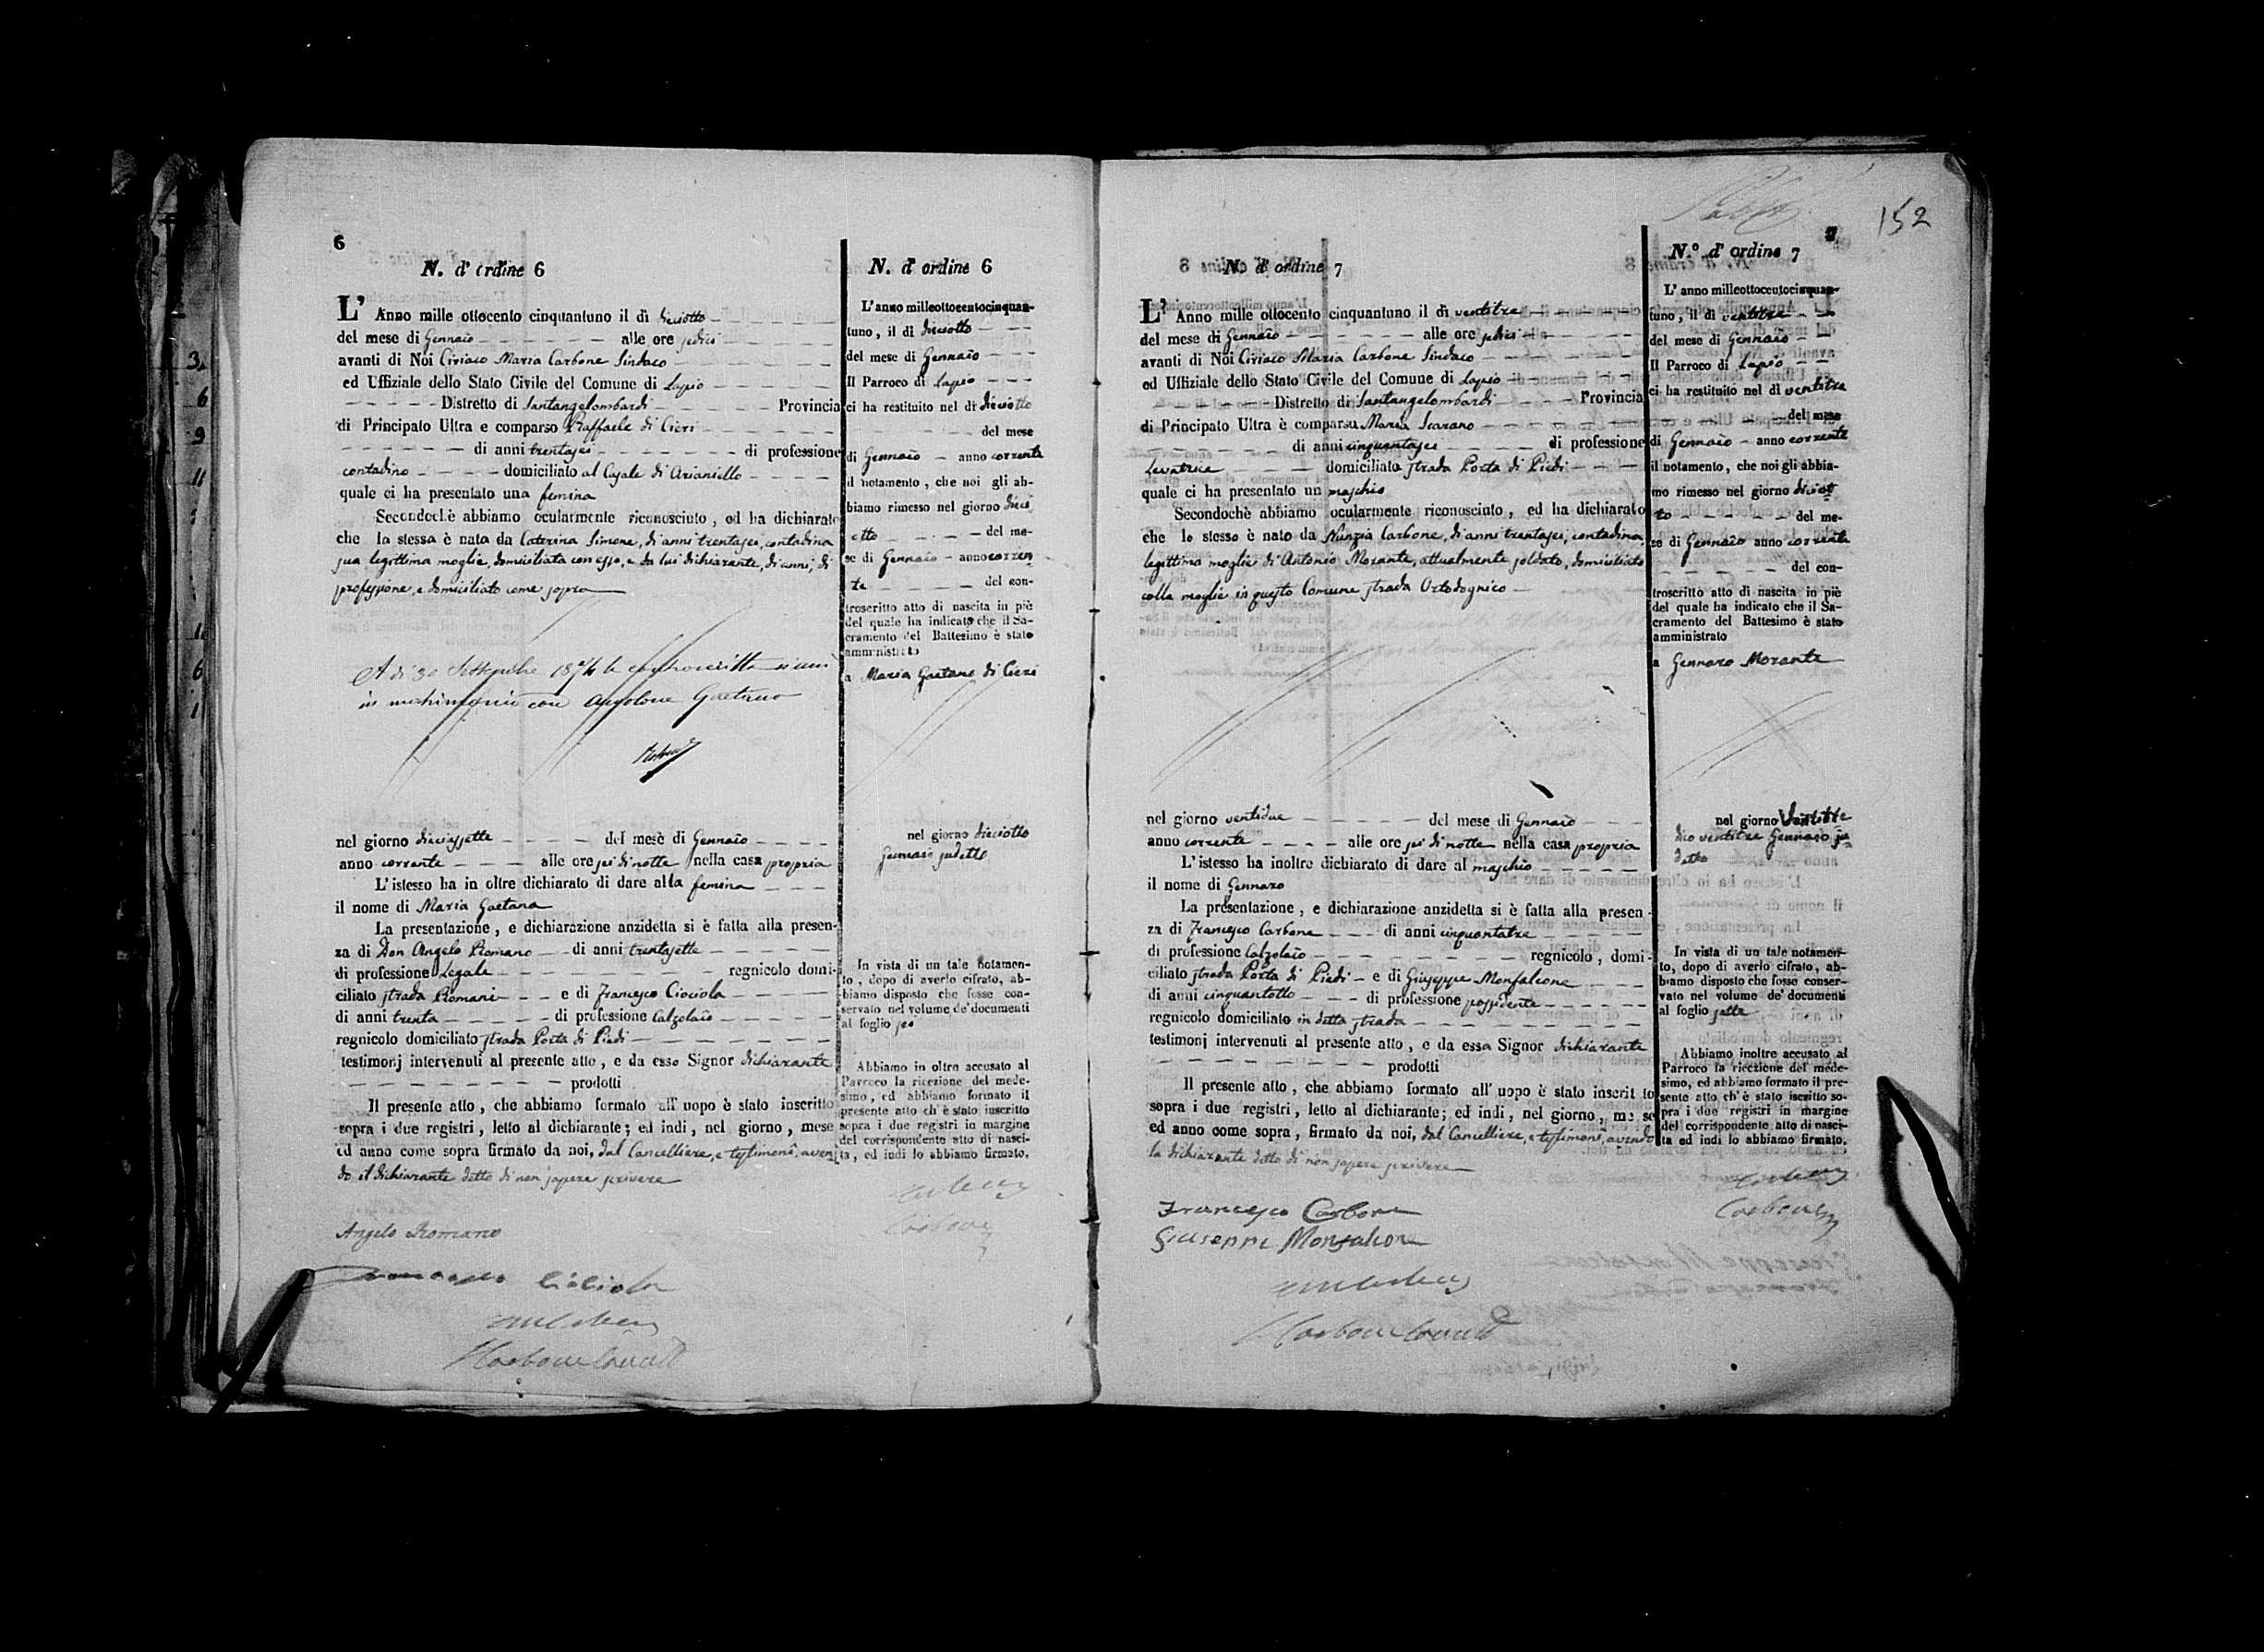 6
N. d' ordine 6
L' Anno mille ottocento cinquantuno il dì diciotto
del mese di Gennaio alle ore sedici
avanti di Noi Ciriaco Maria Carbone Sindaco
ed Uffiziale dello Stato Civile del Comune di Lapio
Distretto di Santangelombardi Provincia
di Principato Ultra e comparso Raffaele di Cieri
di anni trentasei di professione
contadino domiciliato al Casale di Arianiello
quale ci ha presentato una femina
Secondochè abbiamo ocularmente riconosciuto, ed ha dichiarato
che la stessa è nata da Caterina Simone, di anni trentasei, contadina
sua legittima moglie, domiciliata con esso, e da lui dichiarante, di anni, di
professione, e domiciliato come sopra
A dì 30 Settembre 1874 la controscritta si unì
in matrimonio con Gaetano
nel giorno diciassette del mese di Gennaio
anno corrente alle ore sei di notte nella casa propria
L'istesso ha in oltre dichiarato di dare alla femina
il nome di Maria Gaetana
La presentazione, e dichiarazione anzidetta si è fatta alla presen-
za di Don Angelo Romano di anni trentasette
di professione Legale regnicolo domi-
ciliato strada Romani e di Francesco Ciociola
di anni trenta di professione Calzolaio
regnicolo domiciliato strada Porta di Piedi
testimonj intervenuti al presente atto, e da esso Signor dichiarante
prodotti
Il presente atto, che abbiamo formato all' uopo è stato inscritto
sopra i due registri, letto al dichiarante; ed indi, nel giorno, mese
ed anno come sopra firmato da noi, dal Cancelliere, e testimonî, aven
do il dichiarante detto di non sapere scrivere
Angelo Romano
Francesco Ciociola
N. d' ordine 6
L' anno milleottocentocinquan-
tuno, il dì diciotto
del mese di Gennaio
Il Parroco di Lapio
ci ha restituito nel dì diciotto
del mese
di Gennaio anno corrente
il notamento, che noi gli ab-
biamo rimesso nel giorno dici
otto del me-
se di Gennaio anno corren
te del con-
troscritto atto di nascita in piè
del quale ha indicato che il Sa-
cramento del Battesimo è stato
amministrato
a Maria Gaetana di Cieri
nel giorno diciotto
Gennaio sudetto
In vista di un tale notamen-
to, dopo di averlo cifrato, ab-
biamo disposto che fosse con-
servato nel volume de' documenti
al foglio sei
Abbiamo in oltre accusato al
Parroco la ricezione del mede-
simo, ed abbiamo formato il
presente atto ch' è stato inscritto
sopra i due registri in margine
del corrispondente atto di nasci-
ta, ed indi lo abbiamo firmato.
152
7
N. d' ordine 7
L' Anno mille ottocento cinquantuno il dì ventitre
del mese di Gennaio alle ore sedici
avanti di Noi Ciriaco Maria Carbone Sindaco
ed Uffiziale dello Stato Civile del Comune di Lapio
Distretto di Santangelombardi Provincia
di Principato Ultra è comparsa Maria Scarano
di anni cinquantasei di professione
Levatrice domiciliato strada Porta di Piedi
quale ci ha presentato un maschio
Secondochè abbiamo ocularmente riconosciuto, ed ha dichiarato
che lo stesso è nato da Nunzia Carbone, di anni trentasei, contadina,
legittima moglie di Antonio Morante, attualmente soldato, domiciliato
colla moglie in questo Comune strada Ortodognico
nel giorno ventidue del mese di Gennaio
anno corrente alle ore sei di notte nella casa propria
L'istesso ha inoltre dichiarato di dare al maschio
il nome di Gennaro
La presentazione, e dichiarazione anzidetta si è fatta alla presen-
za di Francesco Carbone di anni cinquantatre
di professione Calzolaio regnicolo, domi-
ciliato strada Porta di Piedi e di Giuseppe Monfalcone
di anni cinquantotto di professione possidente
regnicolo domiciliato in detta strada
testimonj intervenuti al presente atto, e da essa Signor dichiarante
prodotti
Il presente atto, che abbiamo formato all' uopo è stato inscritto
sopra i due registri, letto al dichiarante; ed indi, nel giorno, mese
ed anno come sopra, firmato da noi, dal Cancelliere, e testimonî, avendo
la dichiarante detto di non sapere scrivere
Francesco Carbone
Giuseppe Monfalcone
N.° d' ordine 7
L' anno milleottocentocinquan-
tuno, il dì ventitre
del mese di Gennaio
Il Parroco di Lapio
ci ha restituito nel dì ventitre
del mese
di Gennaio anno corrente
il notamento, che noi gli abbia-
mo rimesso nel giorno diciot
to del me-
se di Gennaio anno corrente
del con-
troscritto atto di nascita in piè
del quale ha indicato che il Sa-
cramento del Battesimo è stato
amministrato
a Gennaro Morante
nel giorno
ventitre Gennaio su
detto
In vista di un tale notamen-
to, dopo di averlo cifrato, ab-
biamo disposto che fosse conser-
vato nel volume de' documenti
al foglio sette
Abbiamo inoltre accusato al
Parroco la ricezione del mede-
simo, ed abbiamo formato il pre-
sente atto ch' è stato iscritto so-
pra i due registri in margine
del corrispondente atto di nasci-
ta ed indi lo abbiamo firmato.
Carbone